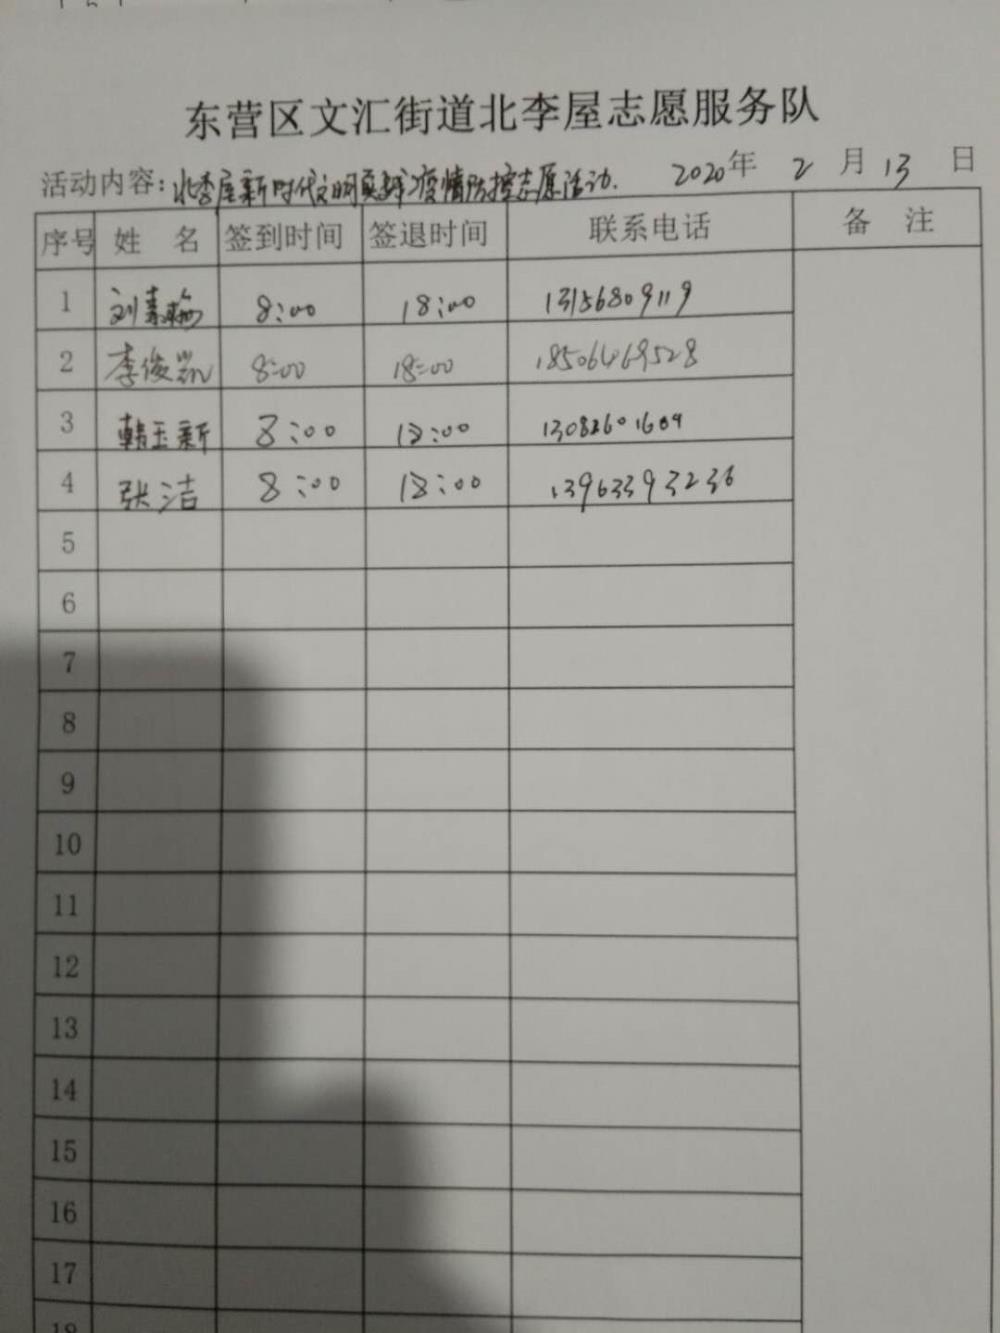 东营区文汇街道北李屋志愿服务队
活动内容：北李屋新时代文明实践疫情防控志愿活动. 2020年 2 月 13 日
序号 姓 名 签到时间 签退时间 联系电话 备 注
1 刘 8:00 18:00 13156809119
2 李俊凯 8:00 18:00 18506469528
3 韩玉新 8:00 18:00 13082601609
4 张洁 8:00 18:00 13963393236
5
6
7
8
9
10
11
12
13
14
15
16
17
18